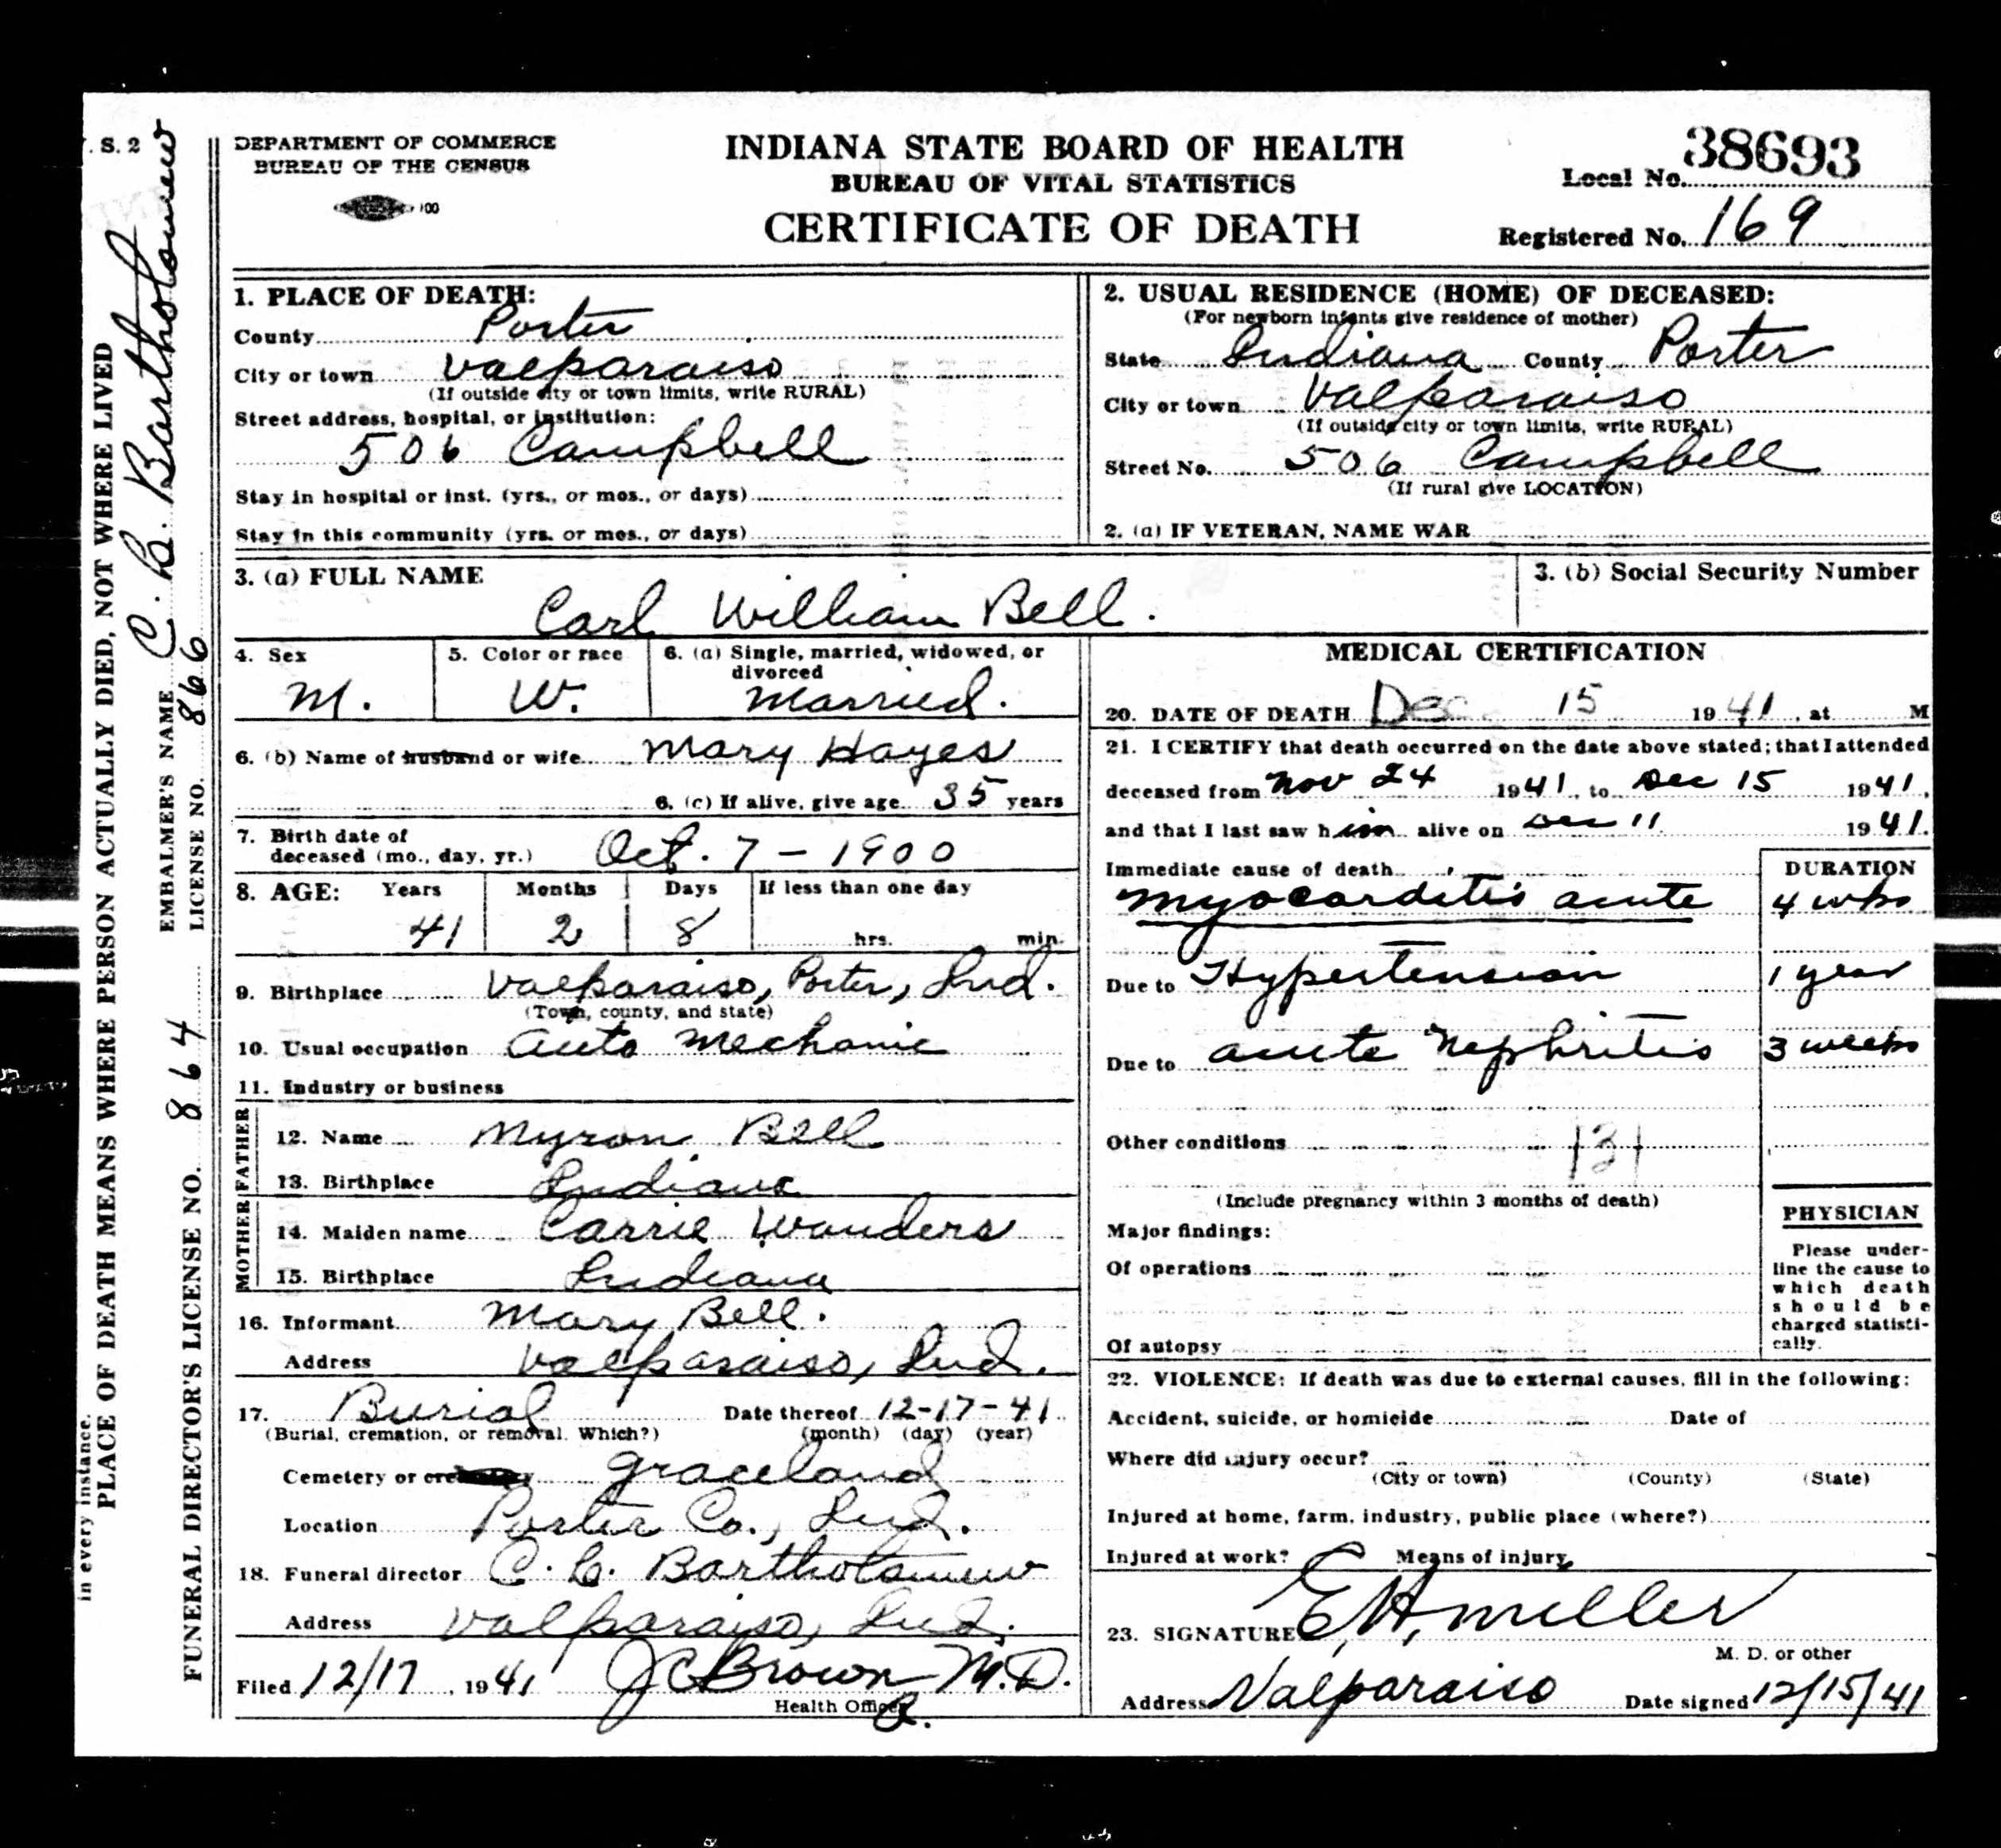 . S. 2
DEPARTMENT OF COMMERCE
BUREAU OF THE CENSUS
100
INDIANA STATE BOARD OF HEALTH
BUREAU OF VITAL STATISTICS
CERTIFICATE OF DEATH
38693
Local No.
Registered No. 169
1. PLACE OF DEATH:
County Porter
City or town Valparaiso
(If outside city or town limits, write RURAL)
Street address, hospital, or institution:
506 Campbell
Stay in hospital or inst. (yrs., or mos., or days)
Stay in this community (yrs. or mos., or days)
2. USUAL RESIDENCE (HOME) OF DECEASED:
(For newborn infants give residence of mother)
State Indiana County Porter
City or town Valparaiso
(If outside city or town limits, write RURAL)
Street No. 506 Campbell
(If rural give LOCATION)
2. (a) IF VETERAN, NAME WAR
3. (a) FULL NAME
Carl William Bell.
3. (b) Social Security Number
4. Sex
M.
5. Color or race
W.
6. (a) Single, married, widowed, or
divorced
Married.
6. (b) Name of husband or wife Mary Hayes
6. (c) If alive, give age 35 years
7. Birth date of
deceased (mo., day, yr.) Oct. 7 - 1900
8. AGE: Years Months Days If less than one day
41 2 8 hrs. min.
9. Birthplace Valparaiso, Porter, Ind.
(Town, county, and state)
10. Usual occupation Auto Mechanic
11. Industry or business
FATHER
12. Name Myron Bell
13. Birthplace Indiana
MOTHER
14. Maiden name Carrie Wanders
15. Birthplace Indiana
16. Informant Mary Bell.
Address Valparaiso, Ind.
17. Burial Date thereof 12-17-41
(Burial, cremation, or removal. Which?) (month) (day) (year)
Cemetery or Graceland
Location Porter Co., Ind.
18. Funeral director C. L. Bartholomew
Address Valparaiso, Ind.
Filed 12/17, 1941 J C Brown M.D.
Health Officer
MEDICAL CERTIFICATION
20. DATE OF DEATH Dec 15 1941, at M
21. I CERTIFY that death occurred on the date above stated; that I attended
deceased from Nov 24 1941, to Dec 15 1941,
and that I last saw him alive on Dec 11 1941.
Immediate cause of death DURATION
Myocarditis acute 4 wks
Due to Hypertension 1 year
Due to acute Nephritis 3 weeks
Other conditions 131
(Include pregnancy within 3 months of death)
Major findings:
Of operations
Of autopsy
PHYSICIAN
Please under-
line the cause to
which death
should be
charged statisti-
cally.
22. VIOLENCE: If death was due to external causes, fill in the following:
Accident, suicide, or homicide Date of
Where did injury occur?
(City or town) (County) (State)
Injured at home, farm, industry, public place (where?)
Injured at work? Means of injury
23. SIGNATURE E. H. Miller
M. D. or other
Address Valparaiso Date signed 12/15/41
in every instance.
PLACE OF DEATH MEANS WHERE PERSON ACTUALLY DIED, NOT WHERE LIVED
EMBALMER'S NAME C. L. Bartholomew
LICENSE NO. 866
FUNERAL DIRECTOR'S LICENSE NO. 864